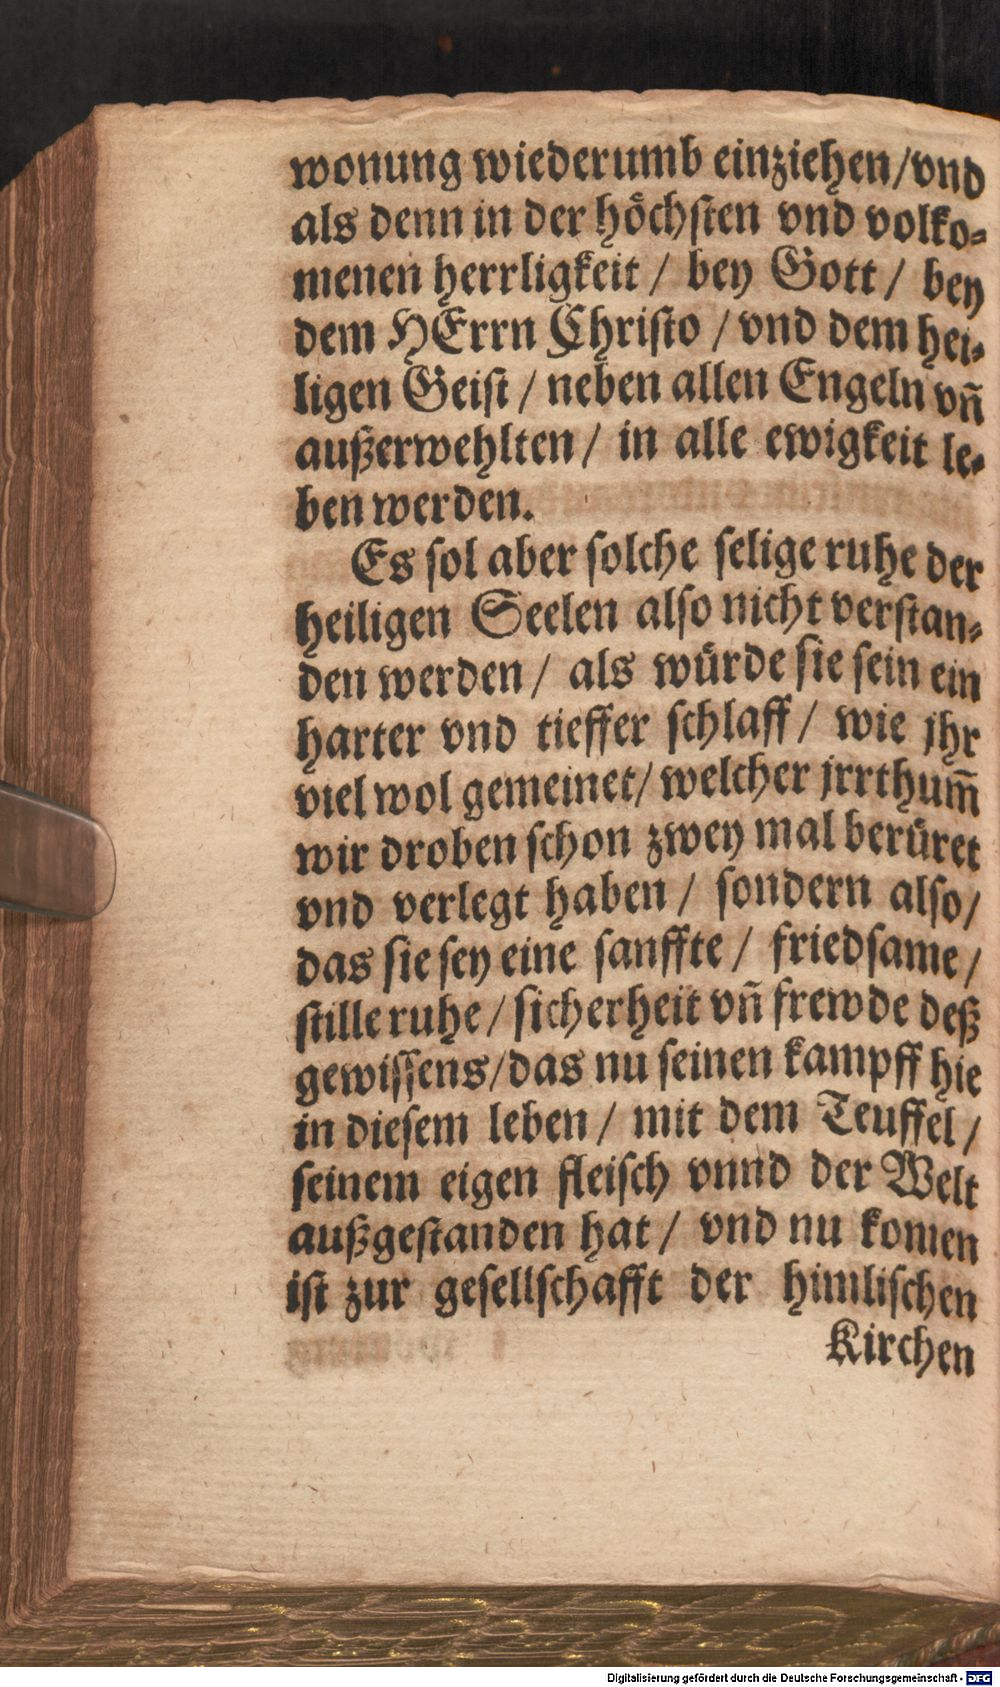 wonung wiederumb einziehen/vnd
als denn in der höchſten vnd volko-
menen herrligkeit / bey Gott / bey
dem HErrn Chriſto / vnd dem hei-
ligen Geiſt / neben allen Engeln vn̄
außerwehlten / in alle ewigkeit le-
ben werden.
Es ſol aber ſolche ſelige ruhe der
heiligen Seelen alſo nicht verſtan-
den werden / als würde ſie ſein ein
harter vnd tieffer ſchlaff / wie jhr
viel wol gemeinet/ welcher jrrthum̄
wir droben ſchon zwey mal berüret
vnd verlegt haben / ſondern alſo/
das ſie ſey eine ſanffte / friedſame /
ſtille ruhe / ſicherheit vn̄ frewde deß
gewiſſens/das nu ſeinen kampff hie
in dieſem leben / mit dem Teuffel /
ſeinem eigen fleiſch vnnd der Welt
außgeſtanden hat / vnd nu komen
iſt zur geſellſchafft der himliſchen
Kirchen
Digitalisierung gefördert durch die Deutsche Forschungsgemeinschaft - DFG